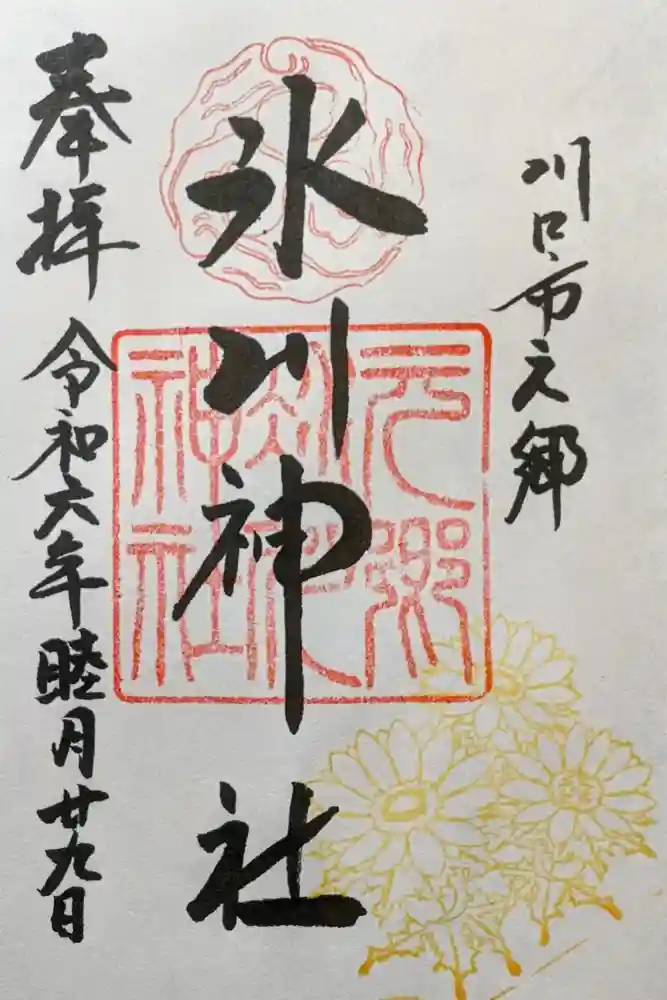 川口市元郷
氷川神社
奉拝
令和六年睦月廿九日
元郷
氷川
神社